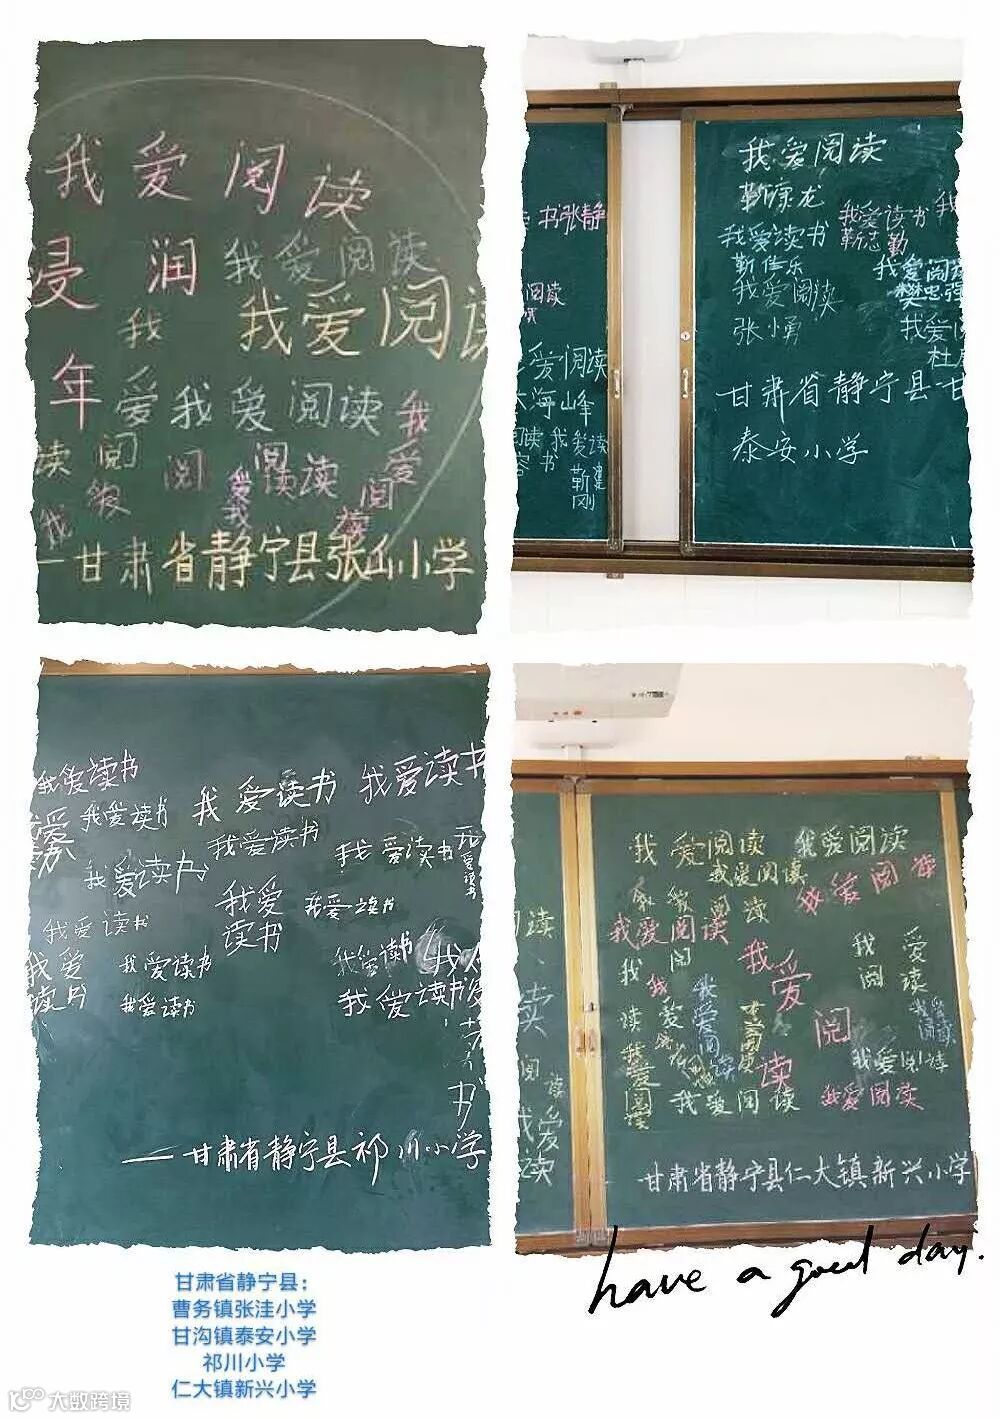 我爱阅读
浸润
我爱阅读
我
我爱阅读
年
爱
我爱阅读
我
爱
读
阅
阅
阅读
我
甘肃省静宁县张屲小学
书张静
阅读
爱阅读
海峰
阅读
我爱读
书
靳
刚
我爱阅读
靳康龙
我爱读书
靳佳乐
我爱阅读
张小勇
我爱读书
靳志勤
我爱阅读
樊忠强
我爱
杜
甘肃省静宁县甘
泰安小学
我爱读书
我爱读书
我爱读书
我爱读书
我爱读书
我爱读书
我爱读书
我爱
读书
我爱读书
我爱读书
我爱
读书
我爱读书
我爱读书
我爱读书
我爱读书
甘肃省静宁县祁川小学
读
读
阅
读
我爱
读
我爱阅读
我爱阅读
我爱阅读
我爱阅读
阅读
我爱阅读
阅
我爱
阅读
我
读
我
爱
阅
读
我
爱
阅
读
我
爱
阅
读
我爱阅读
我爱阅读
我爱阅读
甘肃省静宁县仁大镇新兴小学
have a good day.
甘肃省静宁县：
曹务镇张洼小学
甘沟镇泰安小学
祁川小学
仁大镇新兴小学
大数跨境